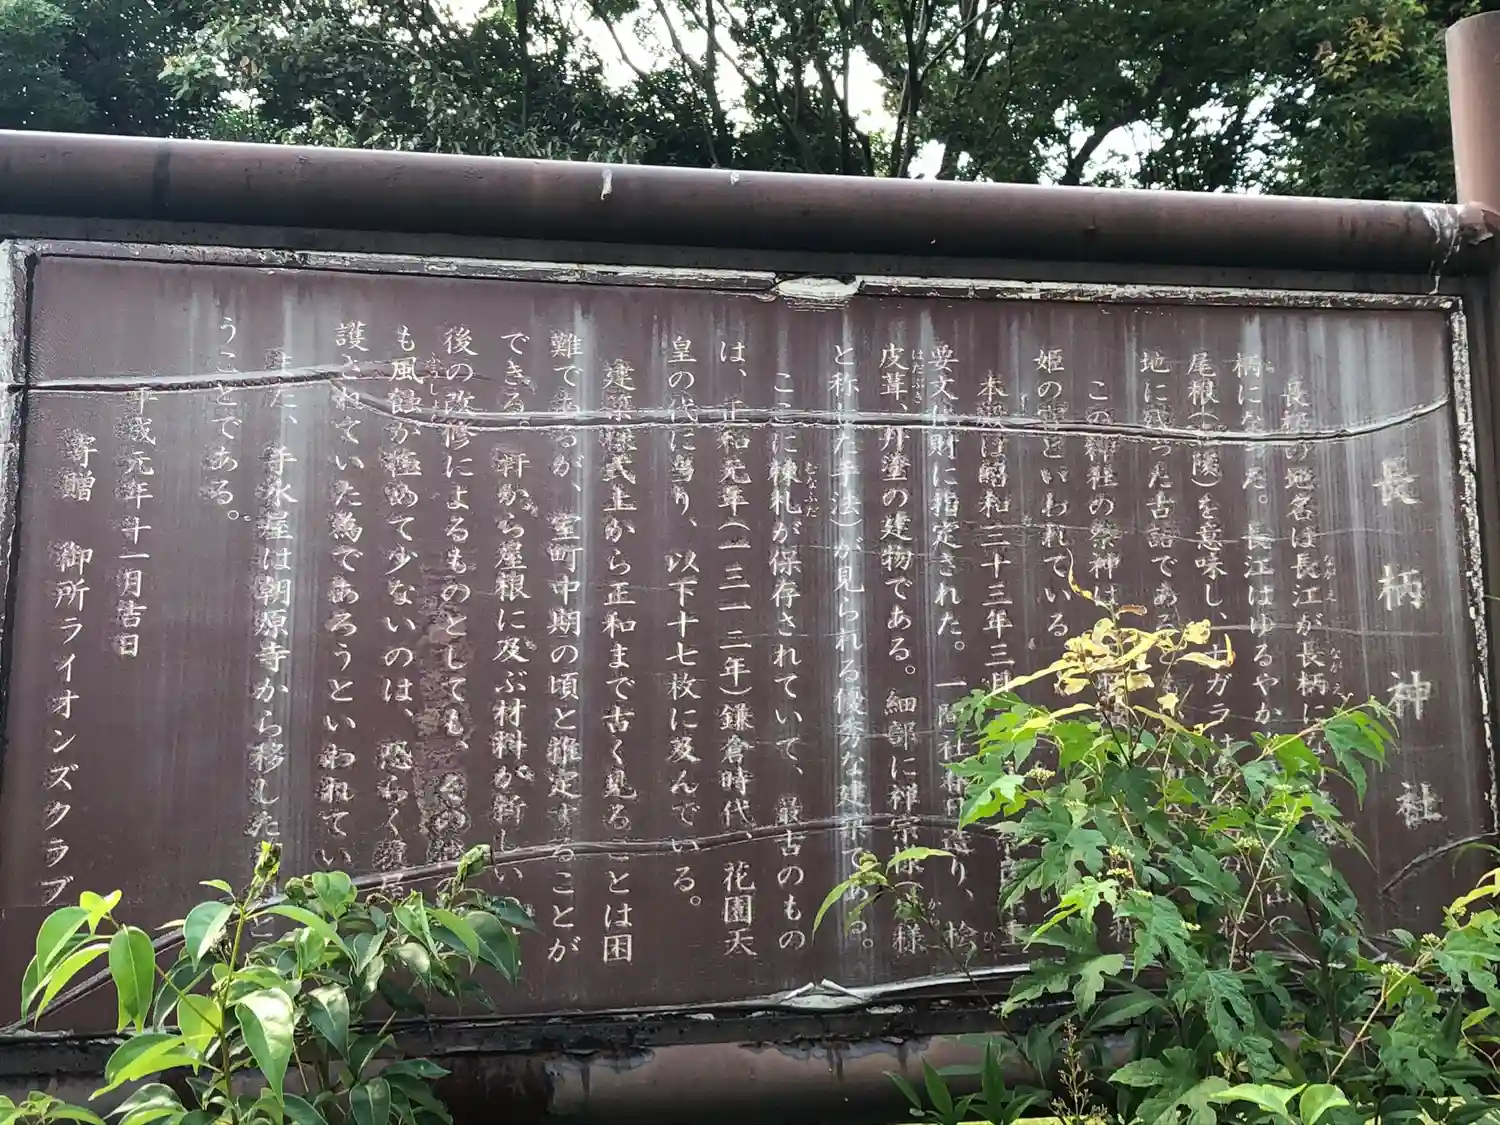 長柄神社
長柄の地名は長江が長柄に
柄になった。長江はゆるやか
尾根(丘陵)を意味し、ナガラは
地に残った古語である
この神社の祭神は
姫の宮といわれている
本殿は昭和三十三年三月
要文化財に指定された。一間社春日造り、桧
皮葺、丹塗の建物である。細部に禅宗様(唐様
と称した手法)が見られる優秀な建築である。
ここに棟札が保存されていて、最古のもの
は、正和元年(一三一二年)鎌倉時代、花園天
皇の代に当り、以下十七枚に及んでいる。
建築様式上から正和まで古く見ることは困
難であるが、室町中期の頃と推定することが
できる。軒から屋根に及ぶ材料が新しい
後の改修によるものとしても、その
も風蝕が極めて少ないのは、恐らく
護されていた為であろうといわれてい
また、手水屋は朝原寺から移した
うことである。
平成元年十一月吉日
寄贈 御所ライオンズクラブ